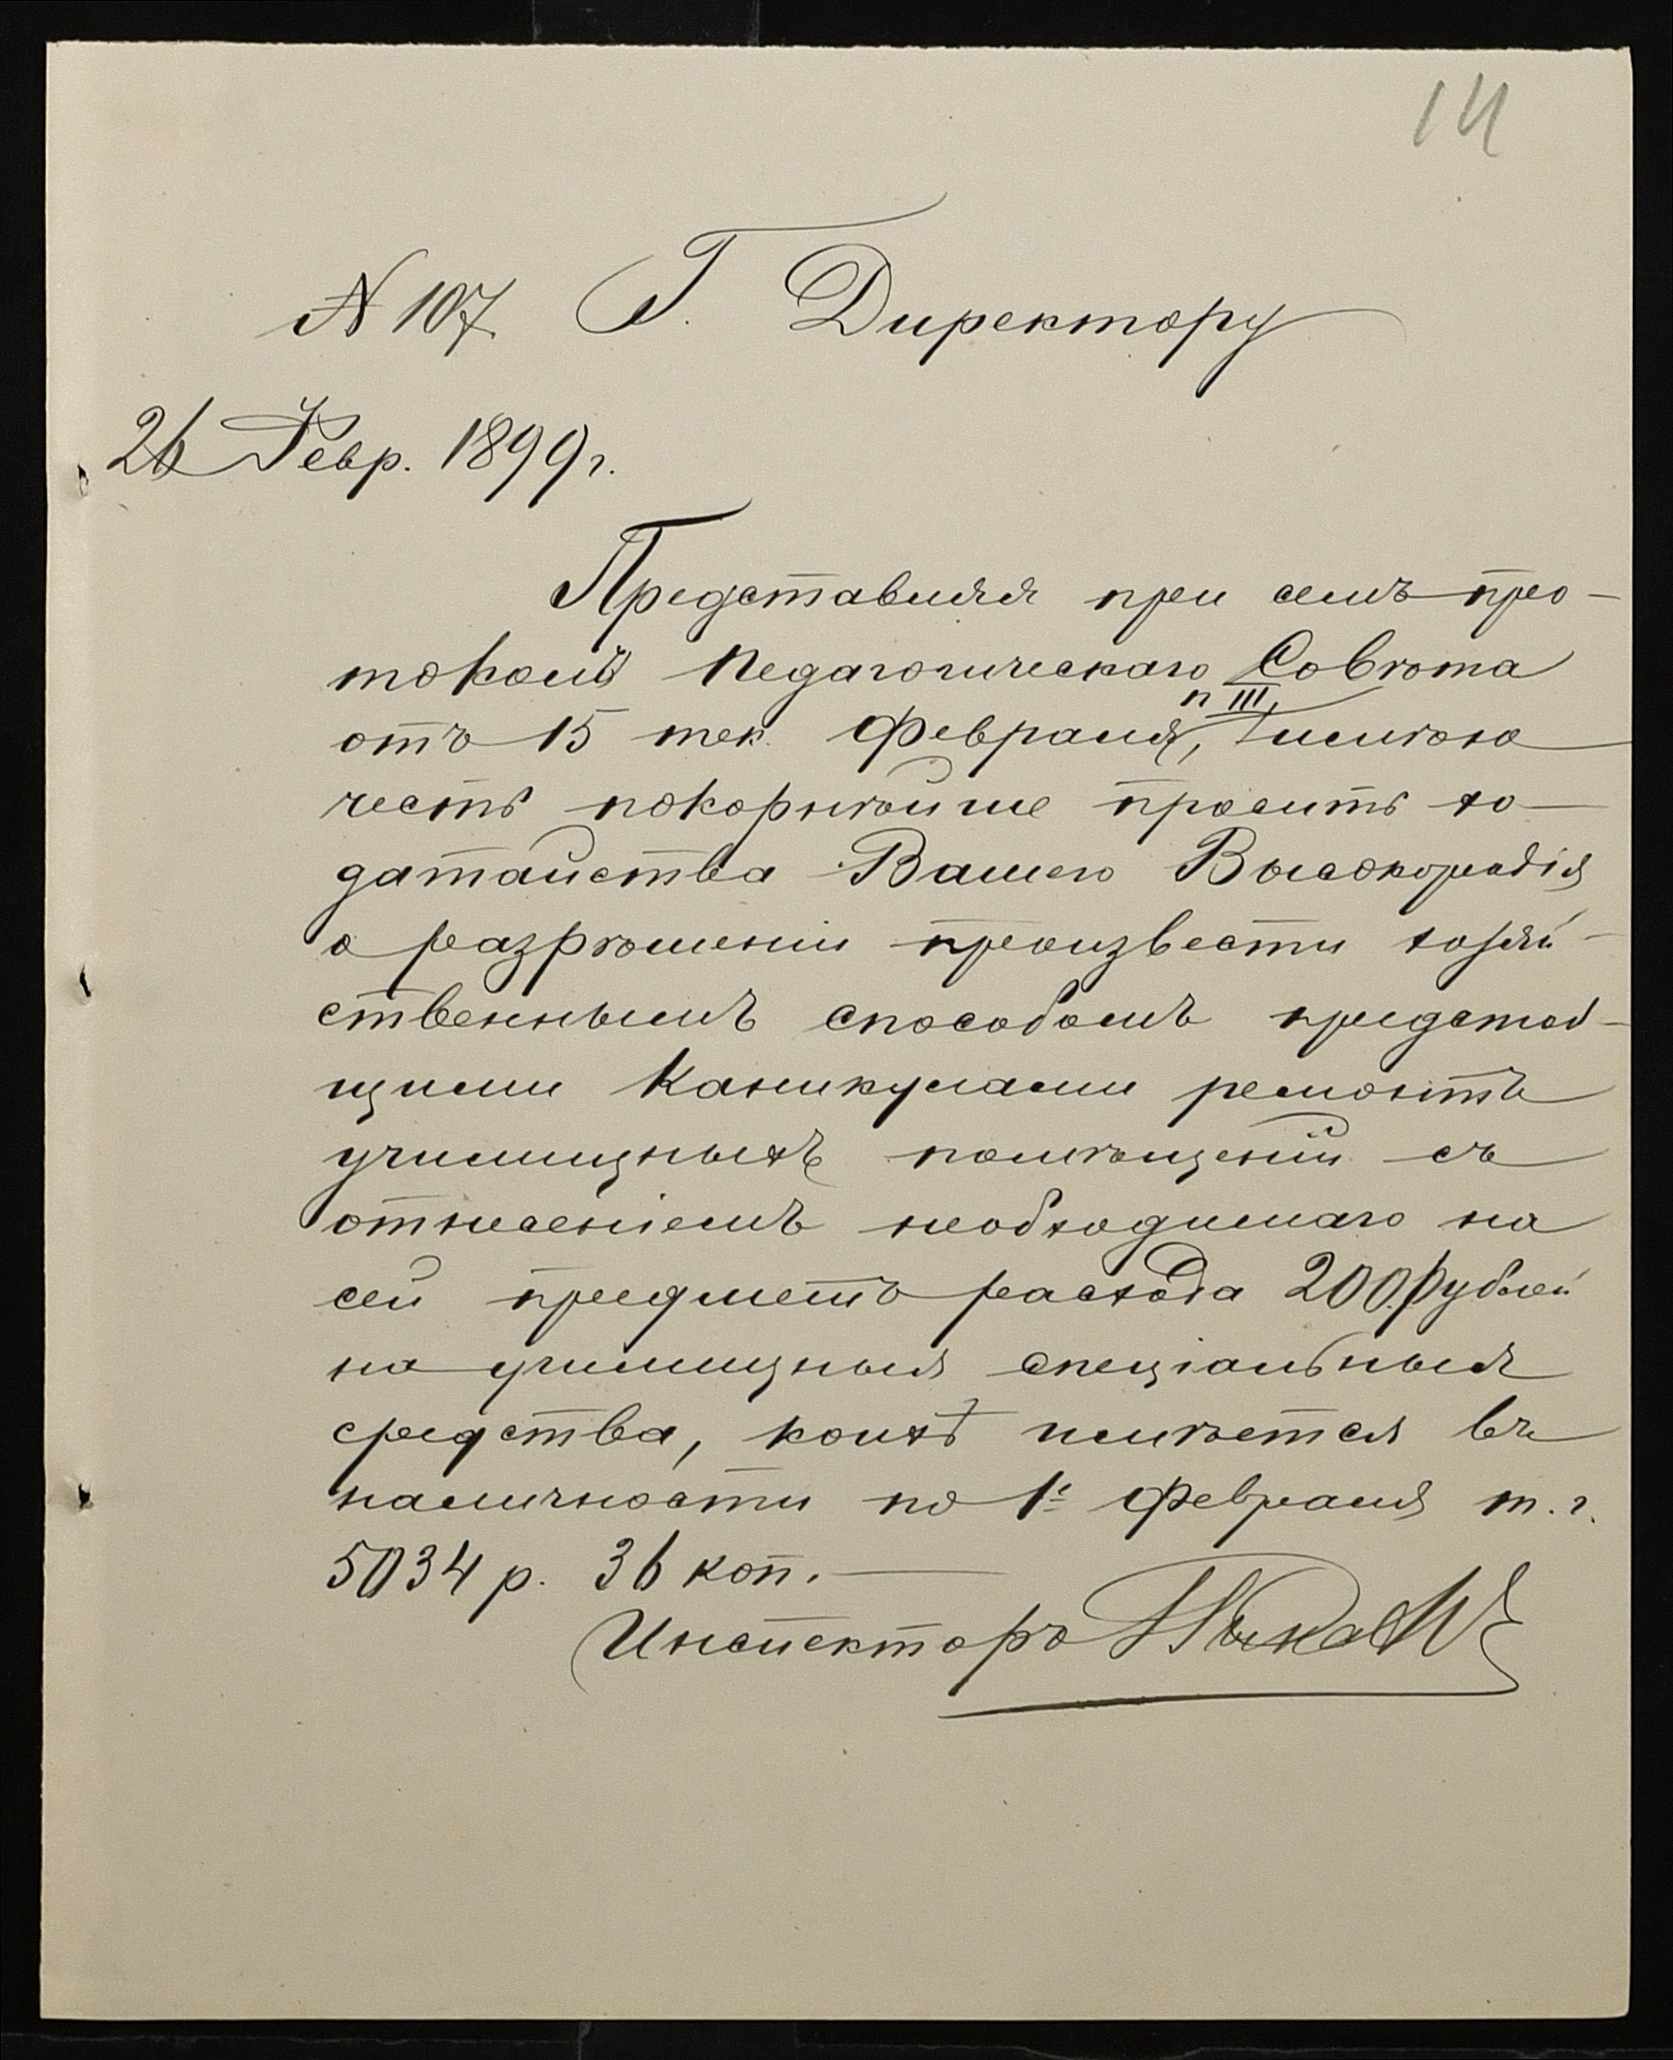 14
N 107. Г. Директору
26 Февр. 1899 г.
Представляя при семъ про-
токолъ Педагогическаго Совѣта
п III,
отъ 15 тек. Февраля, имѣю
честь покорнѣйше просить хо-
датайства Вашего Высокородія
о разрѣшеніи произвести хозяй-
ственнымъ способомъ предстоя-
щими Каникулами ремонтъ
училищныхъ помѣщеній съ
отнесеніемъ необходимаго на
сей предметъ расхода 200 рублей
на училищныя спеціальныя
средства, коихъ имѣется въ
наличности по 1е Февраля т. г.
5034 р. 36 коп.
Инспекторъ